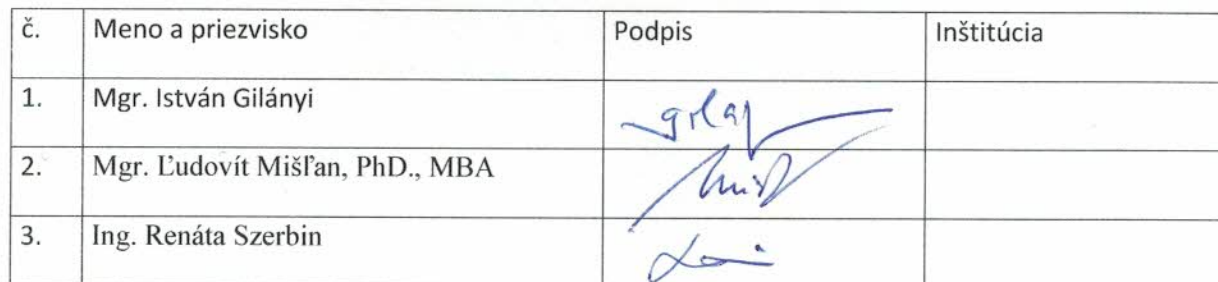 č. Meno a priezvisko Podpis Inštitúcia
1. Mgr. István Gilányi
2. Mgr. Ľudovít Mišľan, PhD., MBA
3. Ing. Renáta Szerbin